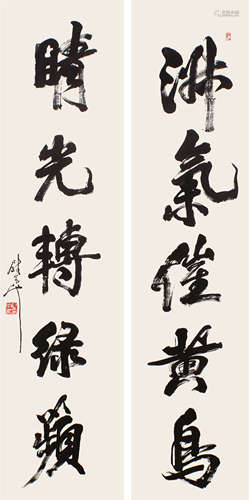 淑氣催黃鳥
晴光轉綠蘋